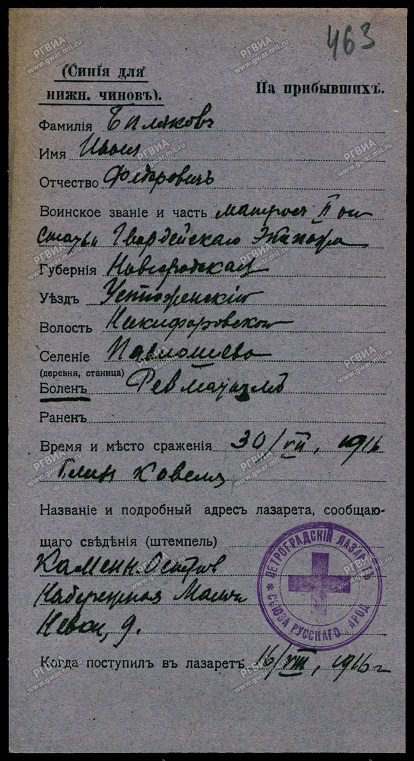 463
(Синія для
нижн. чиновъ).
На прибывшихъ.
Фамилія
Имя
Отчество Федоровичъ
Воинское званіе и часть матросъ II
Статьи Гвардейскаго Экипажа
Губернія Новгородская
Уѣздъ Устюженскій
Волость Никифоровской
Селеніе
(деревня, станица)
Боленъ Ревматизмъ
Раненъ
Время и мѣсто сраженія 30/VII, 1916
близ Ковеля
Названіе и подробный адресъ лазарета, сообщаю-
щаго свѣдѣнія (штемпель)
Каменн. Остров
Набережная Малой
Невки, 9.
ПЕТРОГРАДСКІЙ ЛАЗАРЕТЪ
СОЮЗА РУССКАГО НАРОД
Когда поступилъ въ лазаретъ 16/VIII, 1916 г
РГВИА
www.gwar.mil.ru